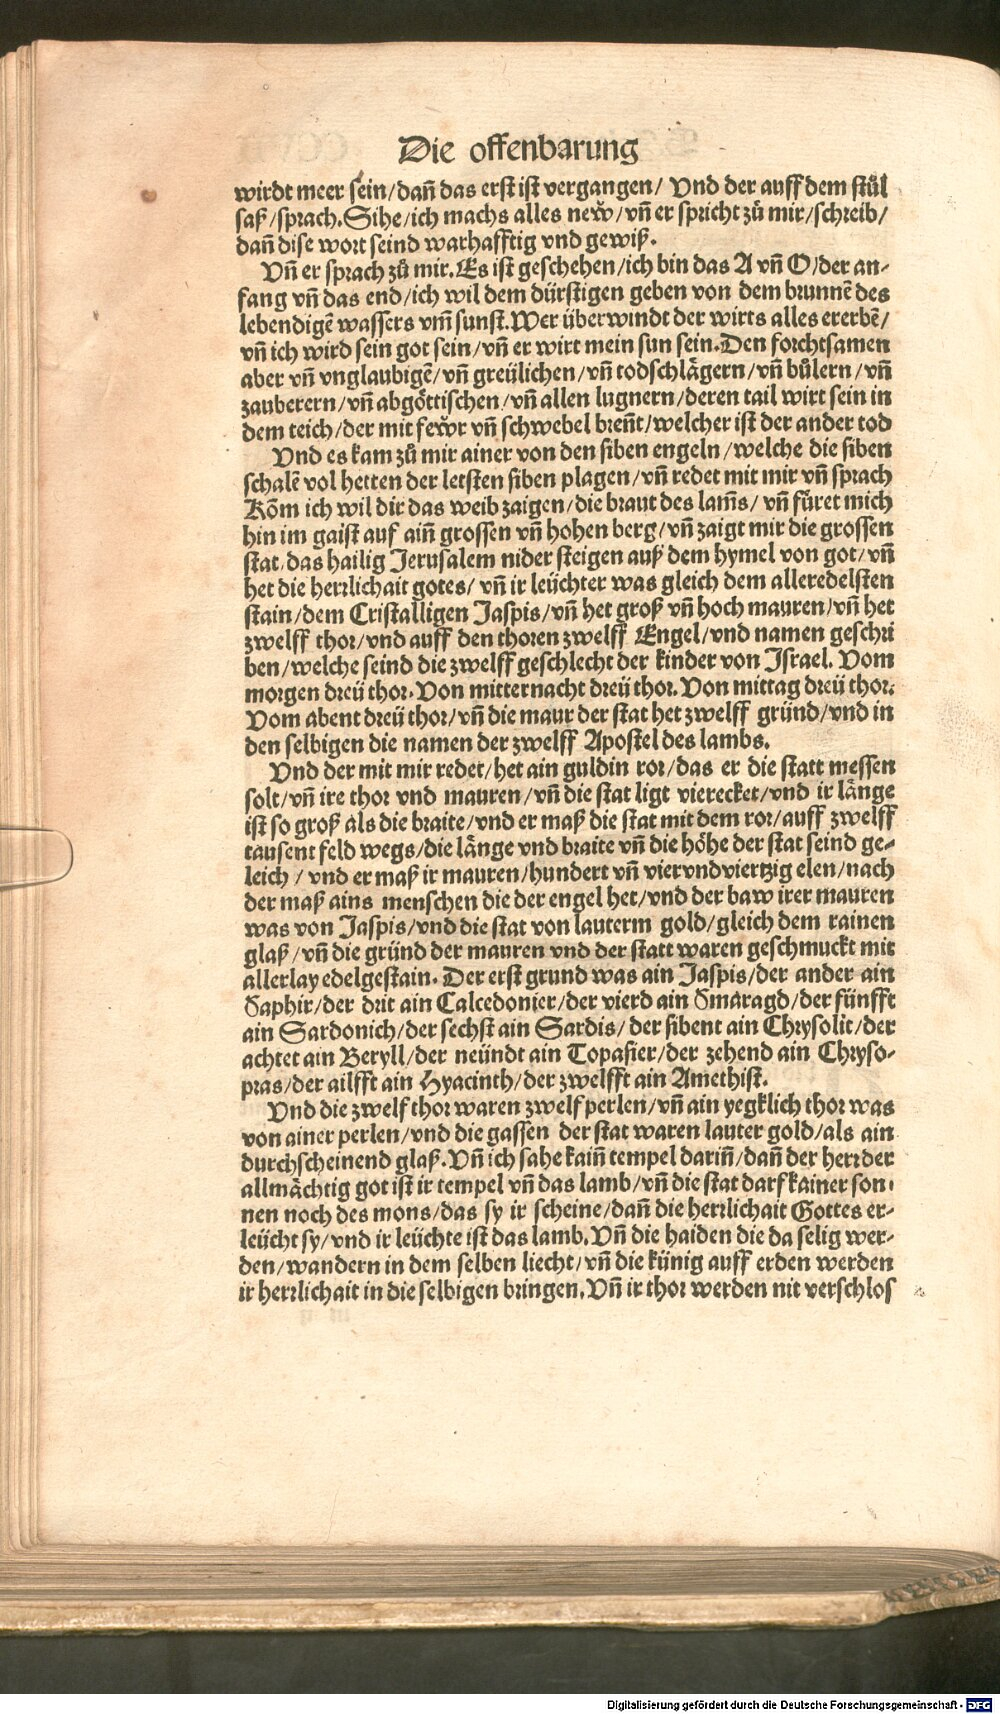 Die offenbarung
wirdt meer sein/dañ das erst ist vergangen/ Vnd der auff dem stůl
saß/sprach. Sihe/ich machs alles new̌/vñ er spricht zů mir/schreib/
dañ dise wort seind warhafftig vnd gewiß.
Vñ er sprach zů mir. Es ist geschehen/ich bin das A vñ O/der an-
fang vñ das end/ich wil dem dürstigen geben von dem brunnē des
lebendigē wassers vm̃ sunst. Wer überwindt der wirts alles ererbē/
vñ ich wird sein got sein/vñ er wirt mein sun sein. Den forchtsamen
aber vñ vnglaubigē/vñ greülichen/vñ todschlägern/vñ bůlern/vñ
zauberern/vñ abgöttischen/vñ allen lugnern/deren tail wirt sein in
dem teich/der mit few̌r vñ schwebel breñt/welcher ist der ander tod
Vnd es kam zů mir ainer von den siben engeln/welche die siben
schalē vol hetten der letsten siben plagen/vñ redet mit mir vñ sprach
Kõm ich wil dir das weib zaigen/die braut des lam̃s/ vñ fůret mich
hin im gaist auf aiñ grossen vñ hohen berg/vñ zaigt mir die grossen
stat/das hailig Jerusalem nider steigen auß dem hymel von got/vñ
het die herrlichait gotes/ vñ ir leüchter was gleich dem alleredelsten
stain/dem Cristalligen Jaspis/vñ het groß vñ hoch mauren/vñ het
zwelff thor/vnd auff den thoren zwelff Engel/vnd namen geschri
ben/welche seind die zwelff geschlecht der kinder von Israel. Vom
morgen dreü thor. Von mitternacht dreü thor. Von mittag dreü thor.
Vom abent dreü thor/vñ die maur der stat het zwelff gründ/vnd in
den selbigen die namen der zwelff Apostel des lambs.
Vnd der mit mir redet/het ain guldin ror/das er die statt messen
solt/vñ ire thor vnd mauren/vñ die stat ligt vierecket/vnd ir länge
ist so groß als die braite/vnd er maß die stat mit dem ror/auff zwelff
tausent feld wegs/die länge vnd braite vñ die höhe der stat seind ge-
leich/ vnd er maß ir mauren/hundert vñ viervndviertzig elen/nach
der maß ains menschen die der engel het/vnd der baw irer mauren
was von Jaspis/vnd die stat von lauterm gold/gleich dem rainen
glaß/vñ die gründ der mauren vnd der statt waren geschmuckt mit
allerlay edelgestain. Der erst grund was ain Jaspis/der ander ain
Saphir/der drit ain Calcedonier/der vierd ain Smaragd/der fünfft
ain Sardonich/der sechst ain Sardis/ der sibent ain Chrysolit/der
achtet ain Beryll/der neündt ain Topasier/der zehend ain Chryso-
pras/der ailfft ain Hyacinth/der zwelfft ain Amethist.
Vnd die zwelf thor waren zwelf perlen/vñ ain yegklich thor was
von ainer perlen/vnd die gassen der stat waren lauter gold/als ain
durchscheinend glaß. Vñ ich sahe kaiñ tempel dariñ/dañ der herr der
allmächtig got ist ir tempel vñ das lamb/vñ die stat darf kainer son-
nen noch des mons/das sy ir scheine/dañ die herrlichait Gottes er-
leücht sy/vnd ir leüchte ist das lamb. Vñ die haiden die da selig wer-
den/wandern in dem selben liecht/vñ die künig auff erden werden
ir herrlichait in die selbigen bringen. Vñ ir thor werden nit verschlos
Digitalisierung gefördert durch die Deutsche Forschungsgemeinschaft - DFG